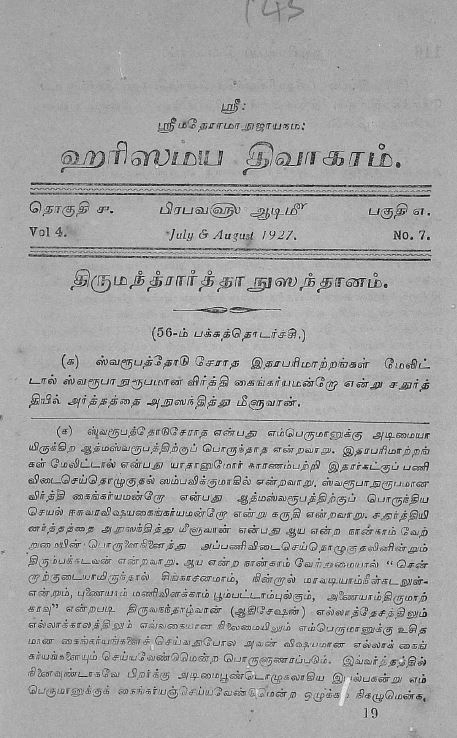 145
ஸ்ரீ:
ஸ்ரீமதேராமாநுஜாயநம:
ஹரிஸமய திவாகரம்.
தொகுதி ௪. பிரபவஹு ஆடிமீ பகுதி ௭.
Vol 4. July & August 1927. No. 7.
திருமந்த்ரார்த்தாநுஸந்தானம்.
(56-ம் பக்கத்தொடர்ச்சி.)
(௧) ஸ்வரூபத்தோடு சேராத இதரபரிமாற்றங்கள் மேலிட்
டால் ஸ்வரூபாநுரூபமான விர்த்தி கைங்கர்யமன்றோ என்று சதுர்த்
தியில் அர்த்தத்தை அநுஸந்தித்து மீளுவான்.
(௧) ஸ்வரூபத்தோடுசேராத என்பது எம்பெருமானுக்கு அடிமையா
யிருக்கிற ஆத்மஸ்வரூபத்திற்குப் பொருந்தாத என்றவாறு. இதரபரிமாற்றங்
கள் மேலிட்டால் என்பது யாதானுமோர் காரணம்பற்றி இதரர்கட்குப் பணி
விடைசெய்தொழுகுதல் ஸம்பவிக்குமாகில் என்றவாறு. ஸ்வரூபாநுரூபமான
விர்த்தி கைங்கர்யமன்றோ என்பது ஆத்மஸ்வரூபத்திற்குப் பொருந்திய
செயல் ஈசுவரவிஷயகைங்கர்யமன்றோ என்று கருதி என்றவாறு. சதுர்த்தியி
னர்த்தத்தை அநுஸந்தித்து மீளுவான் என்பது ஆய என்ற நான்காம் வேற்
றுமையின் பொருளைநினைத்து அப்பணிவிடைசெய்தொழுகுதலினின்றும்
திரும்பக்கடவன் என்றவாறு. ஆய என்ற நான்காம் வேற்றுமையால் "சென்
றாற்குடையாமிருந்தால் சிங்காசனமாம், நின்றால் மரவடியாம்நீள்கடலுள்-
என்றும், புணையாம் மணிவிளக்காம் பூம்பட்டாம்புல்கும், அணையாம்திருமாற்
கரவு" என்றபடி திருவநந்தாழ்வான் (ஆதிசேஷன்) எல்லாத்தேசத்திலும்
எல்லாக்காலத்திலும் எவ்வகையான நிலைமையிலும் எம்பெருமானுக்கு உசித
மான கைங்கர்யங்களைச் செய்வதுபோல அவன் விஷயமான எல்லாக் கைங்
கர்யங்களையும் செய்யவேண்டுமென்ற பொருளுணரப்படும். இவ்வர்த்தத்தில்
நினைவுண்டாகவே பிறர்க்கு அடிமைபூண்டொழுகலாகிய இயல்பகன்று எம்
பெருமானுக்குக் கைங்கர்யஞ்செய்யவேண்டுமென்ற ஒழுக்கம் நிகழுமென்க.
19